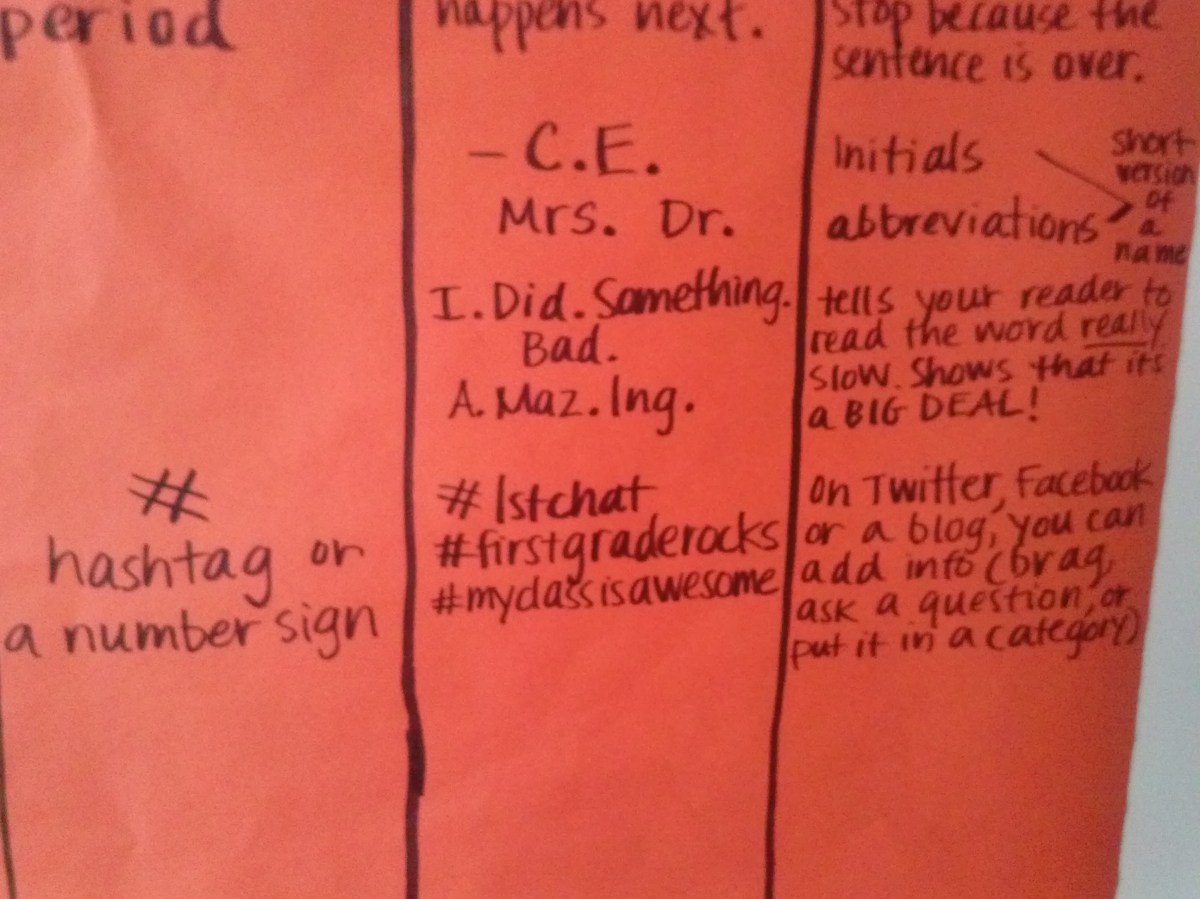 period
happens next.
stop because the
sentence is over.
- C.E.
Initials
Mrs. Dr.
abbreviations
short
version
of
a
name
I. Did. Something.
Bad.
A. Maz. Ing.
tells your reader to
read the word really
slow. Shows that its
a BIG DEAL!
#
hashtag or
a number sign
#1stchat
#firstgraderocks
#myclassisawesome
On Twitter, Facebook
or a blog, you can
add info (brag,
ask a question, or
put it in a category)